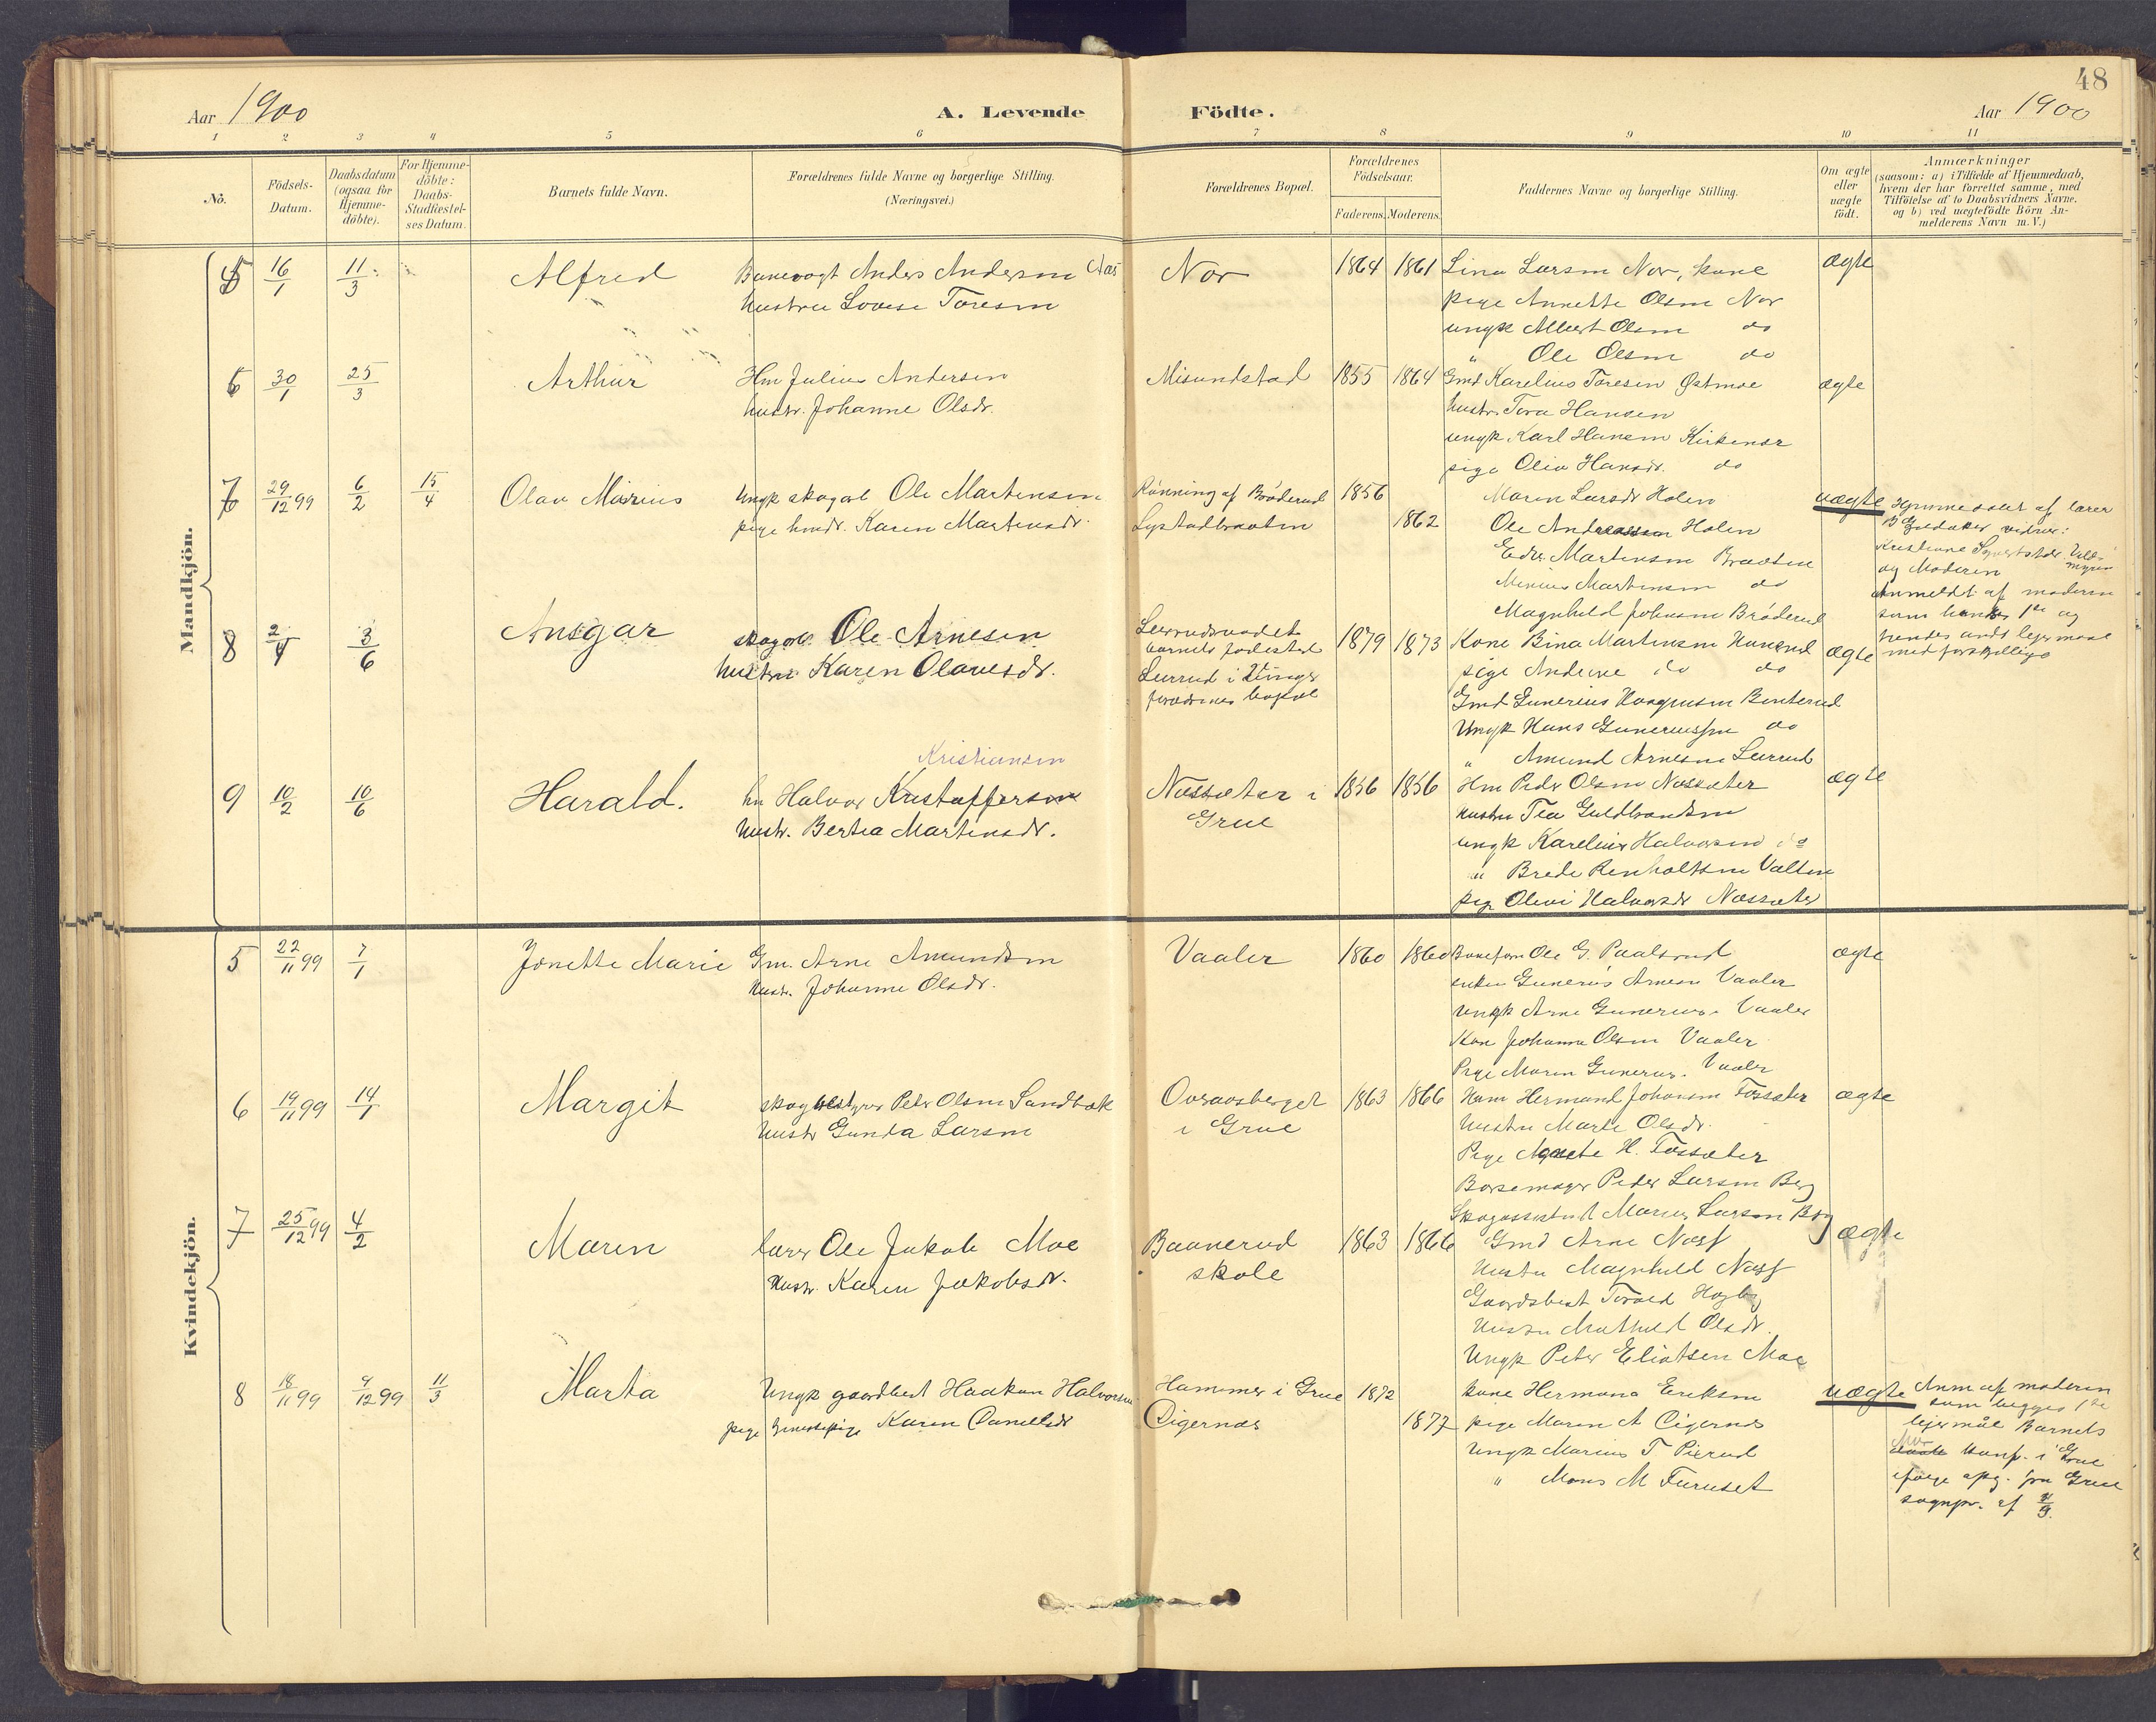 48
Aar 1900
A. Levende Födte.
Aar 1900
1 2 3 4 5 6 7 8 9 10 11
No.
Födsels-Datum.
Daabsdatum (ogsaa for Hjemme-döbte).
For Hjemme-döbte: Daabs-Stadfæstel-ses Datum.
Barnets fulde Navn.
Forældrenes fulde Navne og borgerlige Stilling.
(Næringsvei.)
Forældrenes Bopæl.
Forældrenes Födselsaar.
Faderens. Moderens.
Faddernes Navne og borgerlige Stilling.
Om ægte eller uægte födt.
Anmærkninger
(saasom: a) i Tilfælde af Hjemmedaab,
hvem der har forrettet samme, med
Tilföielse af to Daabsvidners Navne,
og b) ved uægtefödte Börn An-
melderens Navn m. V.)
Mandkjön.
5 16/1 11/3 Alfred Banevogt Anders Andersen Nor 1864 1861 Lina Larsen Nor, kone ægte
hustru Lovise Toresen pige Annette Olsen Nor
ungk Albert Olsen do
" Ole Olsen do
6 30/1 25/3 Arthur Hm Julius Andersen Misundstad 1855 1864 Gmd Karelius Toresen Østmoe ægte
hustr. Johanne Olsdr. hustr. Tora Hansen
ungk Karl Hansen Kirkenær
pige Olia Hansdr. do
7 29/12 99 6/2 15/4 Olav Marius Ungk skogarb Ole Martinsen Rönning af Bröderud 1856 Maren Larsdr Holen uægte Hjemmedöbt af lærer
pige hmdr. Karen Martinsdr. Lystadbraaten 1862 Ole Andreassen Holen vidner:
Martinsen Braaten Kristiane
Minius Martinsen do og Moderen
Magnhild Johnsen Bröderud Anmeldt af moderen
som hans 1ste og
hendes andet lejermaal
med forskjellige
8 2/4 3/6 Ansgar skogarb Ole Arnesen barnets födested 1879 1873 Kone Bina Martinsen Hanerud ægte
hustru Karen Olavesdr. Lerrud i Vinger pige Andrine do do
forældrenes bopæl Gmd Gunerius Haagensen Benterud
Ungk Hans Guneriussen do
" Amund Arnesen Lerrud
Kristiansen
9 10/2 10/6 Harald. hm Halvor Kristoffersen Næssæter i 1856 1856 Hm Peder Olsen Næssæter ægte
hustr. Bertea Martinsdr. Grue hustru Tea Guldbrandsen
ungk Karelius Halvorsen
" Brede Renholtsen Valten
pige Olivi Halvorsdr Næssæter
Kvindekjön.
5 22/11 99 7/1 Jonette Marie Gm. Arne Amundsen Vaaler 1860 1860 Ole G. Paalsrud ægte
hustr. Johanne Olsdr. enken Vaaler
Ungk Arne Gunerius. Vaaler
Kone Johanne Olsen Vaaler
Pige Maren Gunerius. Vaaler
6 19/11 99 14/1 Margit skogbestyrer Peter Olsen Sandbæk Overaasberget 1863 1866 Hm Hermand Johansen Fossæter ægte
hustr Gunda Larsen i Grue hustru Marte Olsdr.
Pige Agnete H. Fossæter
Börsemager Peder Larsen Berg
Skogassistent Marius Larsen Berg
7 25/12 99 4/2 Maren lærer Ole Jakob Moe Baanerud 1863 1866 Gmd Arne Næss ægte
hustr. Karen Jakobsdr. skole hustru Magnhild Næss
Gaardsbest Torvald Hagby
hustru Mathild Olsdr.
Ungk Peter Eliassen Moe
8 18/11 99 4/12 99 11/3 Marta Ungk gaardbest Haakon Halvorsen Hammer i Grue 1872 kone Hermana Eriksen uægte Anm af moderen
pige Karen Danielsdr Digernes 1877 pige Maren A Digernes som begges 1ste
Ungk Marius T Pirrud lejermål Barnets
" Mons M Furuset i Grue
fra Grue
sognepr. af 4/9.